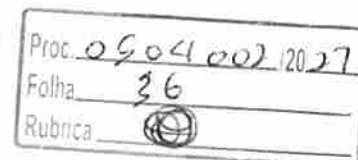 Proc. 0504002/2027
Folha 36
Rubrica